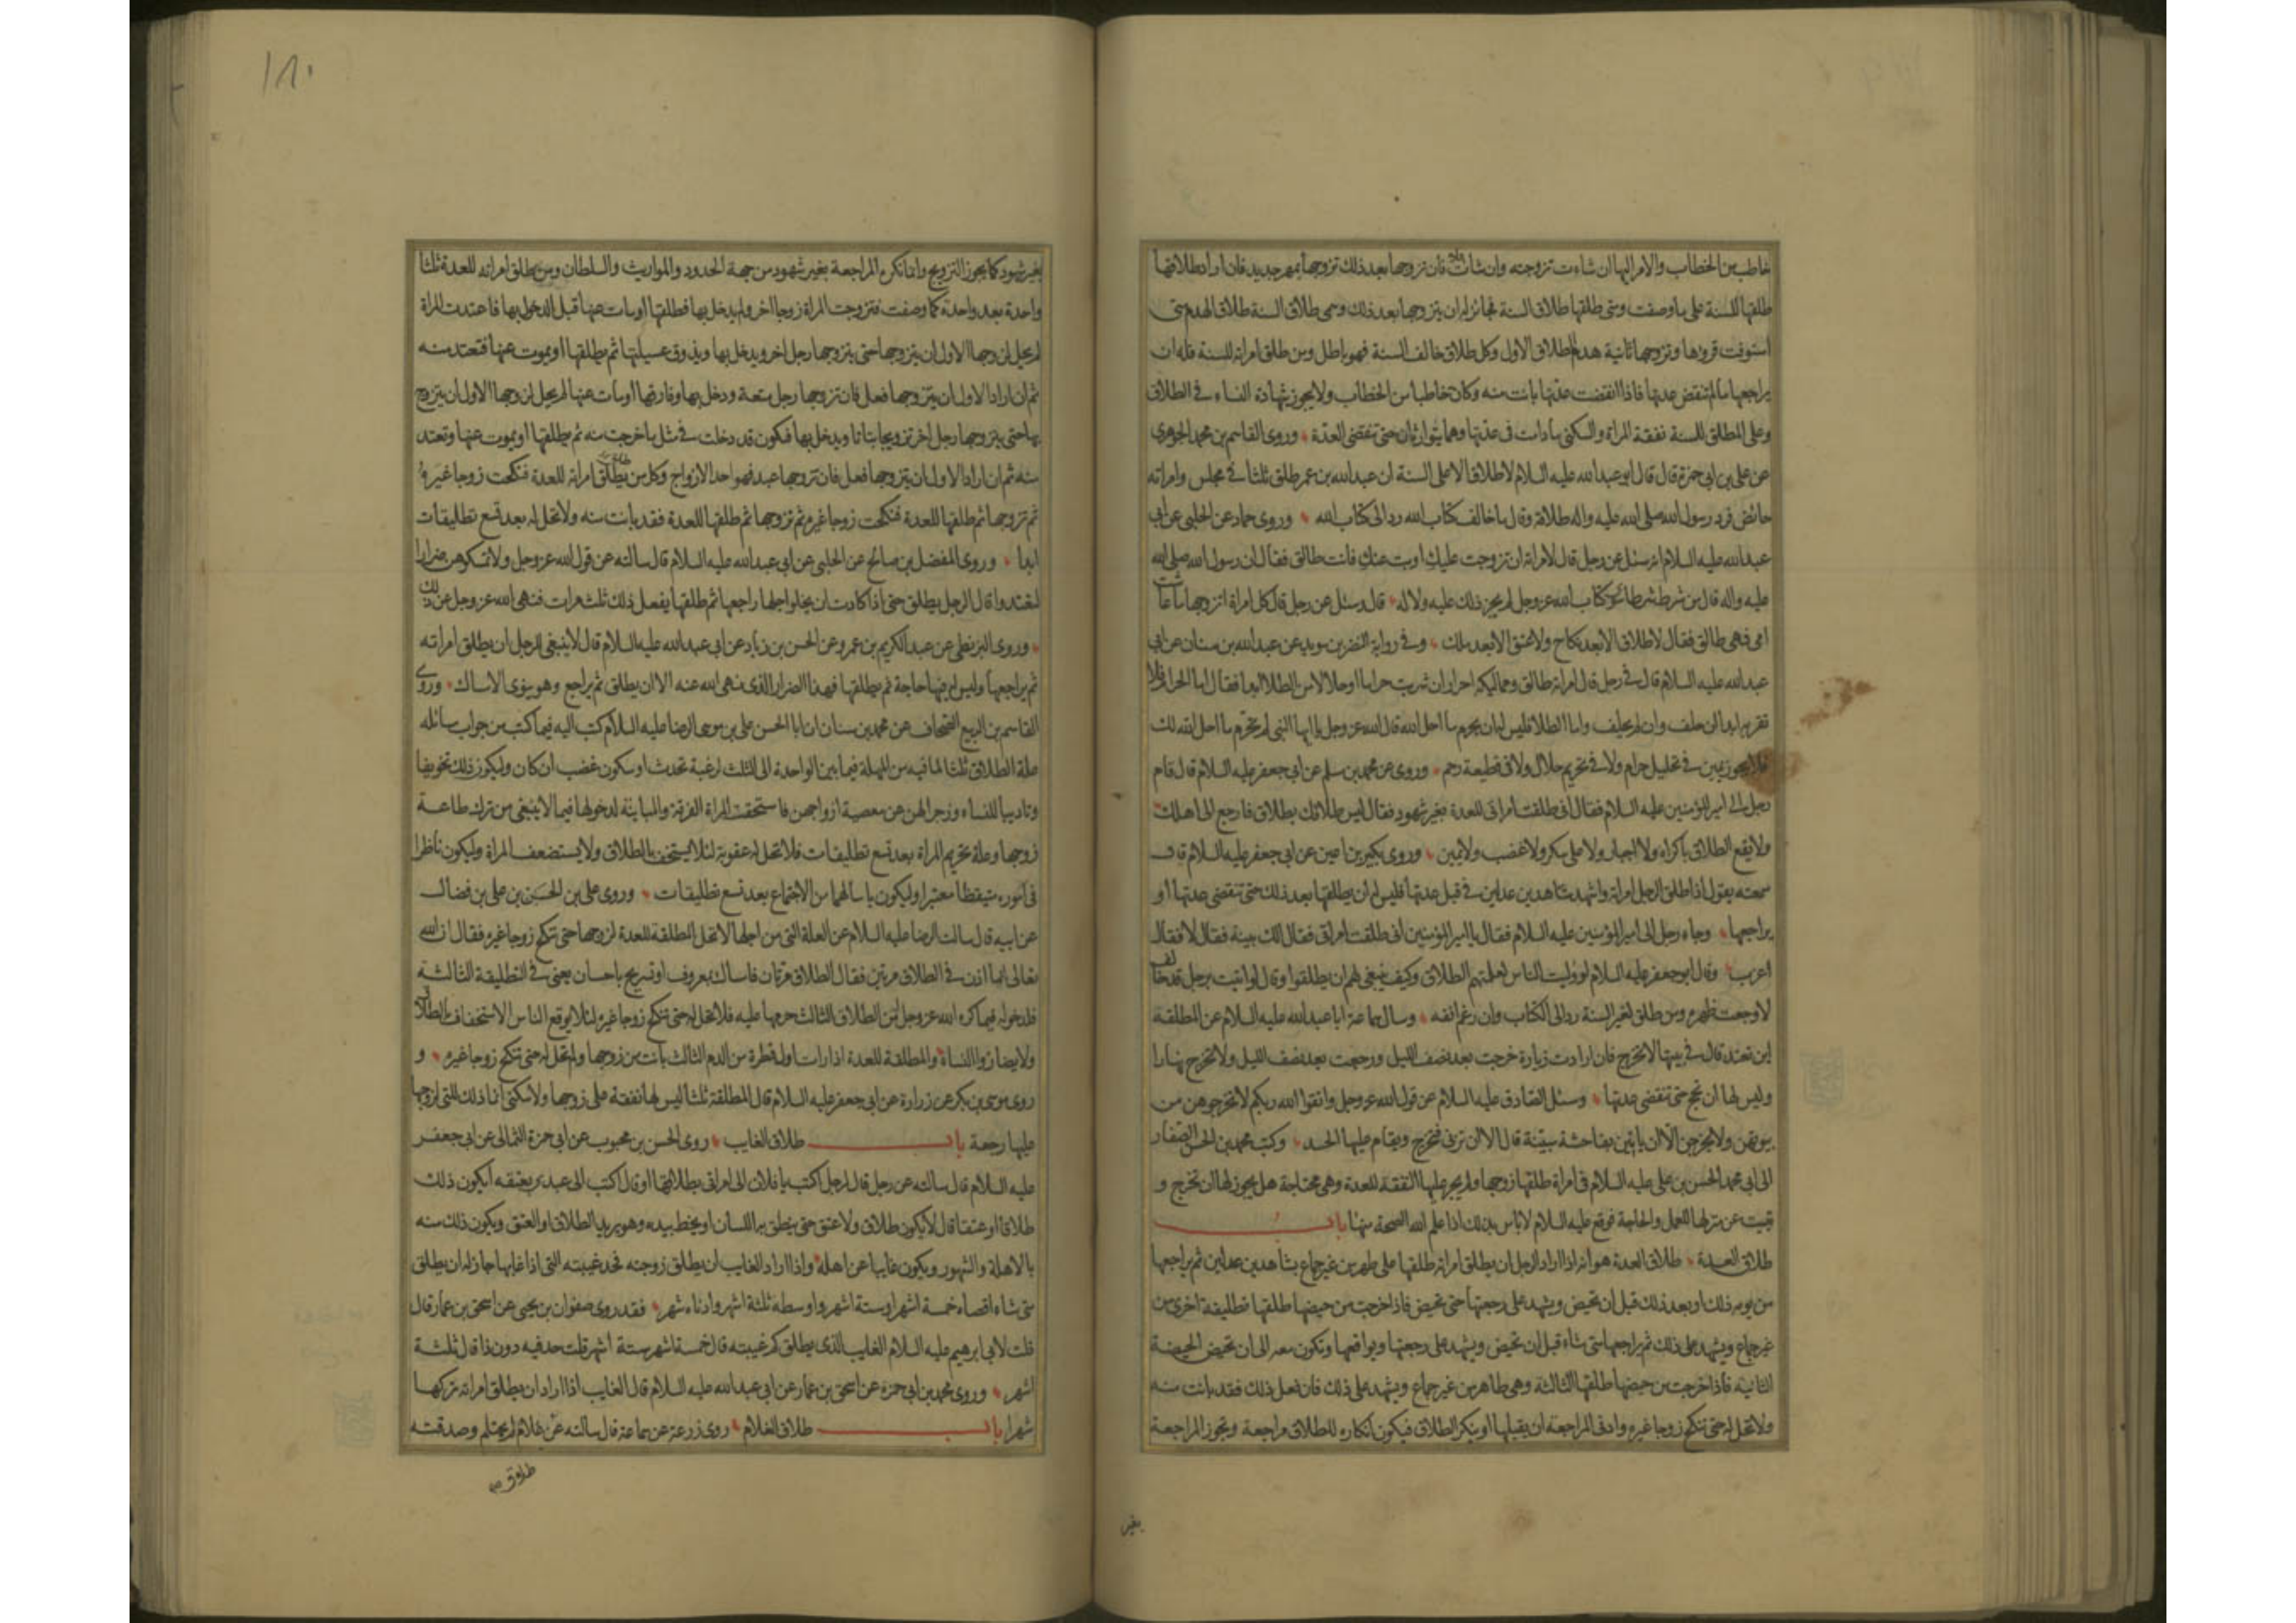 خاطب من الخطاب والامر اليها ان شاءت تزوجته وان شاءت فلا فان تزوجها بعد ذلك تزوجها بمهر جديد فان اراد طلاقها
طلقها للسنة على ما وصفت ومتى طلقها طلاق السنة فجائز له ان يتزوجها بعد ذلك وسمى طلاق السنة طلاق الهدم متى
استوفت قروءها وتزوجها ثانية هدم الطلاق الاول وكل طلاق خالف السنة فهو باطل ومن طلق امراته للسنة فله ان
يراجعها ما لم تنقض عدتها فاذا انقضت عدتها بانت منه وكان خاطبا من الخطاب ولا يجوز شهادة النساء في الطلاق
وعلى المطلق للسنة نفقة المراة والسكنى ما دامت في عدتها وهما يتوارثان حتى تنقضى العدة وروى القاسم بن محمد الجوهرى
عن على بن ابى حمزة قال قال ابو عبد الله عليه السلام لا طلاق الا على السنة ان عبد الله بن عمر طلق ثلثا في مجلس وامراته
حائض فرد رسول الله صلى الله عليه واله طلاقه وقال ما خالف كتاب الله رد الى كتاب الله وروى حماد عن الحلبى عن ابى
عبد الله عليه السلام انه سئل عن رجل قال لامراته ان تزوجت عليك او بت عنك فانت طالق فقال ان رسول الله صلى الله
عليه واله قال من شرط شرطا سوى كتاب الله عز وجل لم يجز ذلك عليه ولا له قال وسئل عن رجل قال كل امراة اتزوجها ما عاشت
امى فهى طالق فقال لا طلاق الا بعد نكاح ولا عتق الا بعد ملك وفي رواية النضر بن سويد عن عبد الله بن سنان عن ابى
عبد الله عليه السلام قال في رجل قال امراته طالق ومماليكه احرار ان شربت حراما او حلالا من الطلا ابدا فقال اما الحرام فلا
تقربه ابدا ان حلف وان لم يحلف واما الطلا فليس له ان يحرم ما احل الله قال الله عز وجل يا ايها النبى لم تحرم ما احل الله لك
فلا يجوز يمين في تحليل حرام ولا في تحريم حلال ولا في قطيعة رحم وروى عن محمد بن مسلم عن ابى جعفر عليه السلام قال قام
رجل الى امير المؤمنين عليه السلام فقال انى طلقت امراتى للعدة بغير شهود فقال ليس طلاقك بطلاق فارجع الى اهلك
ولا يقع الطلاق باكراه ولا اجبار ولا على سكر ولا غضب ولا يمين وروى بكير بن اعين عن ابى جعفر عليه السلام قال
سمعته يقول اذا طلق الرجل امراته واشهد شاهدين عدلين في قبل عدتها فليس له ان يطلقها بعد ذلك حتى تنقضى عدتها او
يراجعها وجاء رجل الى امير المؤمنين عليه السلام فقال يا امير المؤمنين انى طلقت امراتى فقال الك بينة فقال لا فقال
اعزب وقال ابو جعفر عليه السلام لو وليت الناس لعلمتهم الطلاق وكيف ينبغى لهم ان يطلقوا وقال لو اتيت برجل قد خالف
لاوجعت ظهره ومن طلق لغير السنة رد الى الكتاب وان رغم انفه وسال سماعة ابا عبد الله عليه السلام عن المطلقة
اين تعتد قال في بيتها لا تخرج فان ارادت زيارة خرجت بعد نصف الليل ورجعت بعد نصف الليل ولا تخرج نهارا
وليس لها ان تحج حتى تنقضى عدتها وسئل الصادق عليه السلام عن قول الله عز وجل واتقوا الله ربكم لا تخرجوهن من
بيوتهن ولا يخرجن الا ان ياتين بفاحشة مبينة قال الا ان تزنى فتخرج ويقام عليها الحد وكتب محمد بن الحسن الصفار
الى ابى محمد الحسن بن على عليه السلام في امراة طلقها زوجها ولم يجر عليها النفقة للعدة وهى محتاجة هل يجوز لها ان تخرج و
تبيت عن منزلها للعمل والحاجة فوقع عليه السلام لا باس بذلك اذا علم الله الصحة منها باب
طلاق العدة طلاق العدة هو انه اذا اراد الرجل ان يطلق امراته طلقها على طهر من غير جماع بشاهدين عدلين ثم يراجعها
من يومه ذلك او بعد ذلك قبل ان تحيض ويشهد على رجعتها حتى تحيض فاذا خرجت من حيضها طلقها تطليقة اخرى من
غير جماع ويشهد على ذلك ثم يراجعها متى شاء قبل ان تحيض ويشهد على رجعتها ويواقعها وتكون معه الى ان تحيض الحيضة
الثانية فاذا خرجت من حيضها طلقها الثالثة وهى طاهر من غير جماع ويشهد على ذلك فان فعل ذلك فقد بانت منه
ولا تحل له حتى تنكح زوجا غيره وادنى المراجعة ان يقبلها او ينكر الطلاق فيكون انكاره للطلاق مراجعة وتجوز المراجعة
بغير
١٨٠
بغير شهود كما يجوز التزويج وانما نكره المراجعة بغير شهود من جهة الحدود والمواريث والسلطان ومن طلق امراته للعدة ثلثا
واحدة بعد واحدة كما وصفت فتزوجت المراة زوجا اخر ولم يدخل بها فطلقها او مات عنها قبل الدخول بها فاعتدت المراة
لم يحل لزوجها الاول ان يتزوجها حتى يتزوجها رجل اخر ويدخل بها ويذوق عسيلتها ثم يطلقها او يموت عنها فتعتد منه
ثم ان اراد الاول ان يتزوجها فعل فان تزوجها رجل متعة ودخل بها وفارقها او مات عنها لم يحل لزوجها الاول ان يتزوج
بها حتى يتزوجها رجل اخر تزويجا بتاتا ويدخل بها فتكون قد دخلت في مثل ما خرجت منه ثم يطلقها او يموت عنها وتعتد
منه ثم ان اراد الاول ان يتزوجها فعل فان تزوجها عبد فهو احد الازواج وكل من يطلق امراته للعدة فنكحت زوجا غيره
ثم تزوجها ثم طلقها للعدة فنكحت زوجا غيره ثم تزوجها ثم طلقها للعدة فقد بانت منه ولا تحل له بعد تسع تطليقات
ابدا وروى المفضل بن صالح عن الحلبى عن ابى عبد الله عليه السلام قال سالته عن قول الله عز وجل ولا تمسكوهن ضرارا
لتعتدوا قال الرجل يطلق حتى اذا كادت ان يخلو اجلها راجعها ثم طلقها يفعل ذلك ثلث مرات فنهى الله عز وجل عن ذلك
وروى البزنطى عن عبد الكريم بن عمرو عن الحسن بن زياد عن ابى عبد الله عليه السلام قال لا ينبغى للرجل ان يطلق امراته
ثم يراجعها وليس له فيها حاجة ثم يطلقها فهذا الضرار الذى نهى الله عنه الا ان يطلق ثم يراجع وهو ينوى الامساك وروى
القاسم بن الربيع الصحاف عن محمد بن سنان ان ابا الحسن على بن موسى الرضا عليه السلام كتب اليه فيما كتب من جواب مسائله
علة الطلاق ثلثا لما فيه من المهلة فيما بين الواحدة الى الثلث لرغبة تحدث او سكون غضب ان كان وليكون ذلك تخويفا
وتاديبا للنساء وزجرا لهن عن معصية ازواجهن فاستحقت المراة الفرقة والمباينة لدخولها فيما لا ينبغى من ترك طاعة
زوجها وعلة تحريم المراة بعد تسع تطليقات فلا تحل له عقوبة لئلا يستخف بالطلاق ولا يستضعف المراة وليكون ناظرا
فى اموره متيقظا معتبرا وليكون ياسا لهما من الاجتماع بعد تسع تطليقات وروى على بن الحسن بن على بن فضال
عن ابيه قال سالت الرضا عليه السلام عن العلة التى من اجلها لا تحل المطلقة للعدة لزوجها حتى تنكح زوجا غيره فقال ان الله
تعالى انما اذن في الطلاق مرتين فقال الطلاق مرتان فامساك بمعروف او تسريح باحسان يعنى في التطليقة الثالثة
فلدخوله فيما كره الله عز وجل من الطلاق الثالث حرمها عليه فلا تحل له حتى تنكح زوجا غيره لئلا يوقع الناس الاستخفاف بالطلاق
ولا يضاروا النساء والمطلقة للعدة اذا رات اول قطرة من الدم الثالث بانت من زوجها ولم تحل له حتى تنكح زوجا غيره و
روى موسى بن بكر عن زرارة عن ابى جعفر عليه السلام قال المطلقة ثلثا ليس لها نفقة على زوجها ولا سكنى انما ذلك للتى لزوجها
عليها رجعة باب طلاق الغايب روى الحسن بن محبوب عن ابى حمزة الثمالى عن ابى جعفر
عليه السلام قال سالته عن رجل قال لرجل اكتب يا فلان الى امراتى بطلاقها او قال اكتب الى عبدى بعتقه ايكون ذلك
طلاقا او عتقا قال لا يكون طلاق ولا عتق حتى ينطق به اللسان او يخط بيده وهو يريد الطلاق او العتق ويكون ذلك منه
بالاهلة والشهور ويكون غايبا عن اهله واذا اراد الغايب ان يطلق زوجته فحد غيبته التى اذا غابها جاز له ان يطلق
متى شاء اقصاه خمسة اشهر او ستة اشهر واوسطه ثلثة اشهر وادناه شهر فقد روى صفوان بن يحيى عن اسحق بن عمار قال
قلت لابى ابرهيم عليه السلام الغايب الذى يطلق كم غيبته قال خمسة اشهر ستة اشهر قلت حد فيه دون ذا قال ثلثة
اشهر وروى محمد بن ابى حمزة عن اسحق بن عمار عن ابى عبد الله عليه السلام قال الغايب اذا اراد ان يطلق امراته تركها
شهرا باب طلاق الغلام روى زرعة عن سماعة قال سالته عن غلام لم يحتلم وصدقته